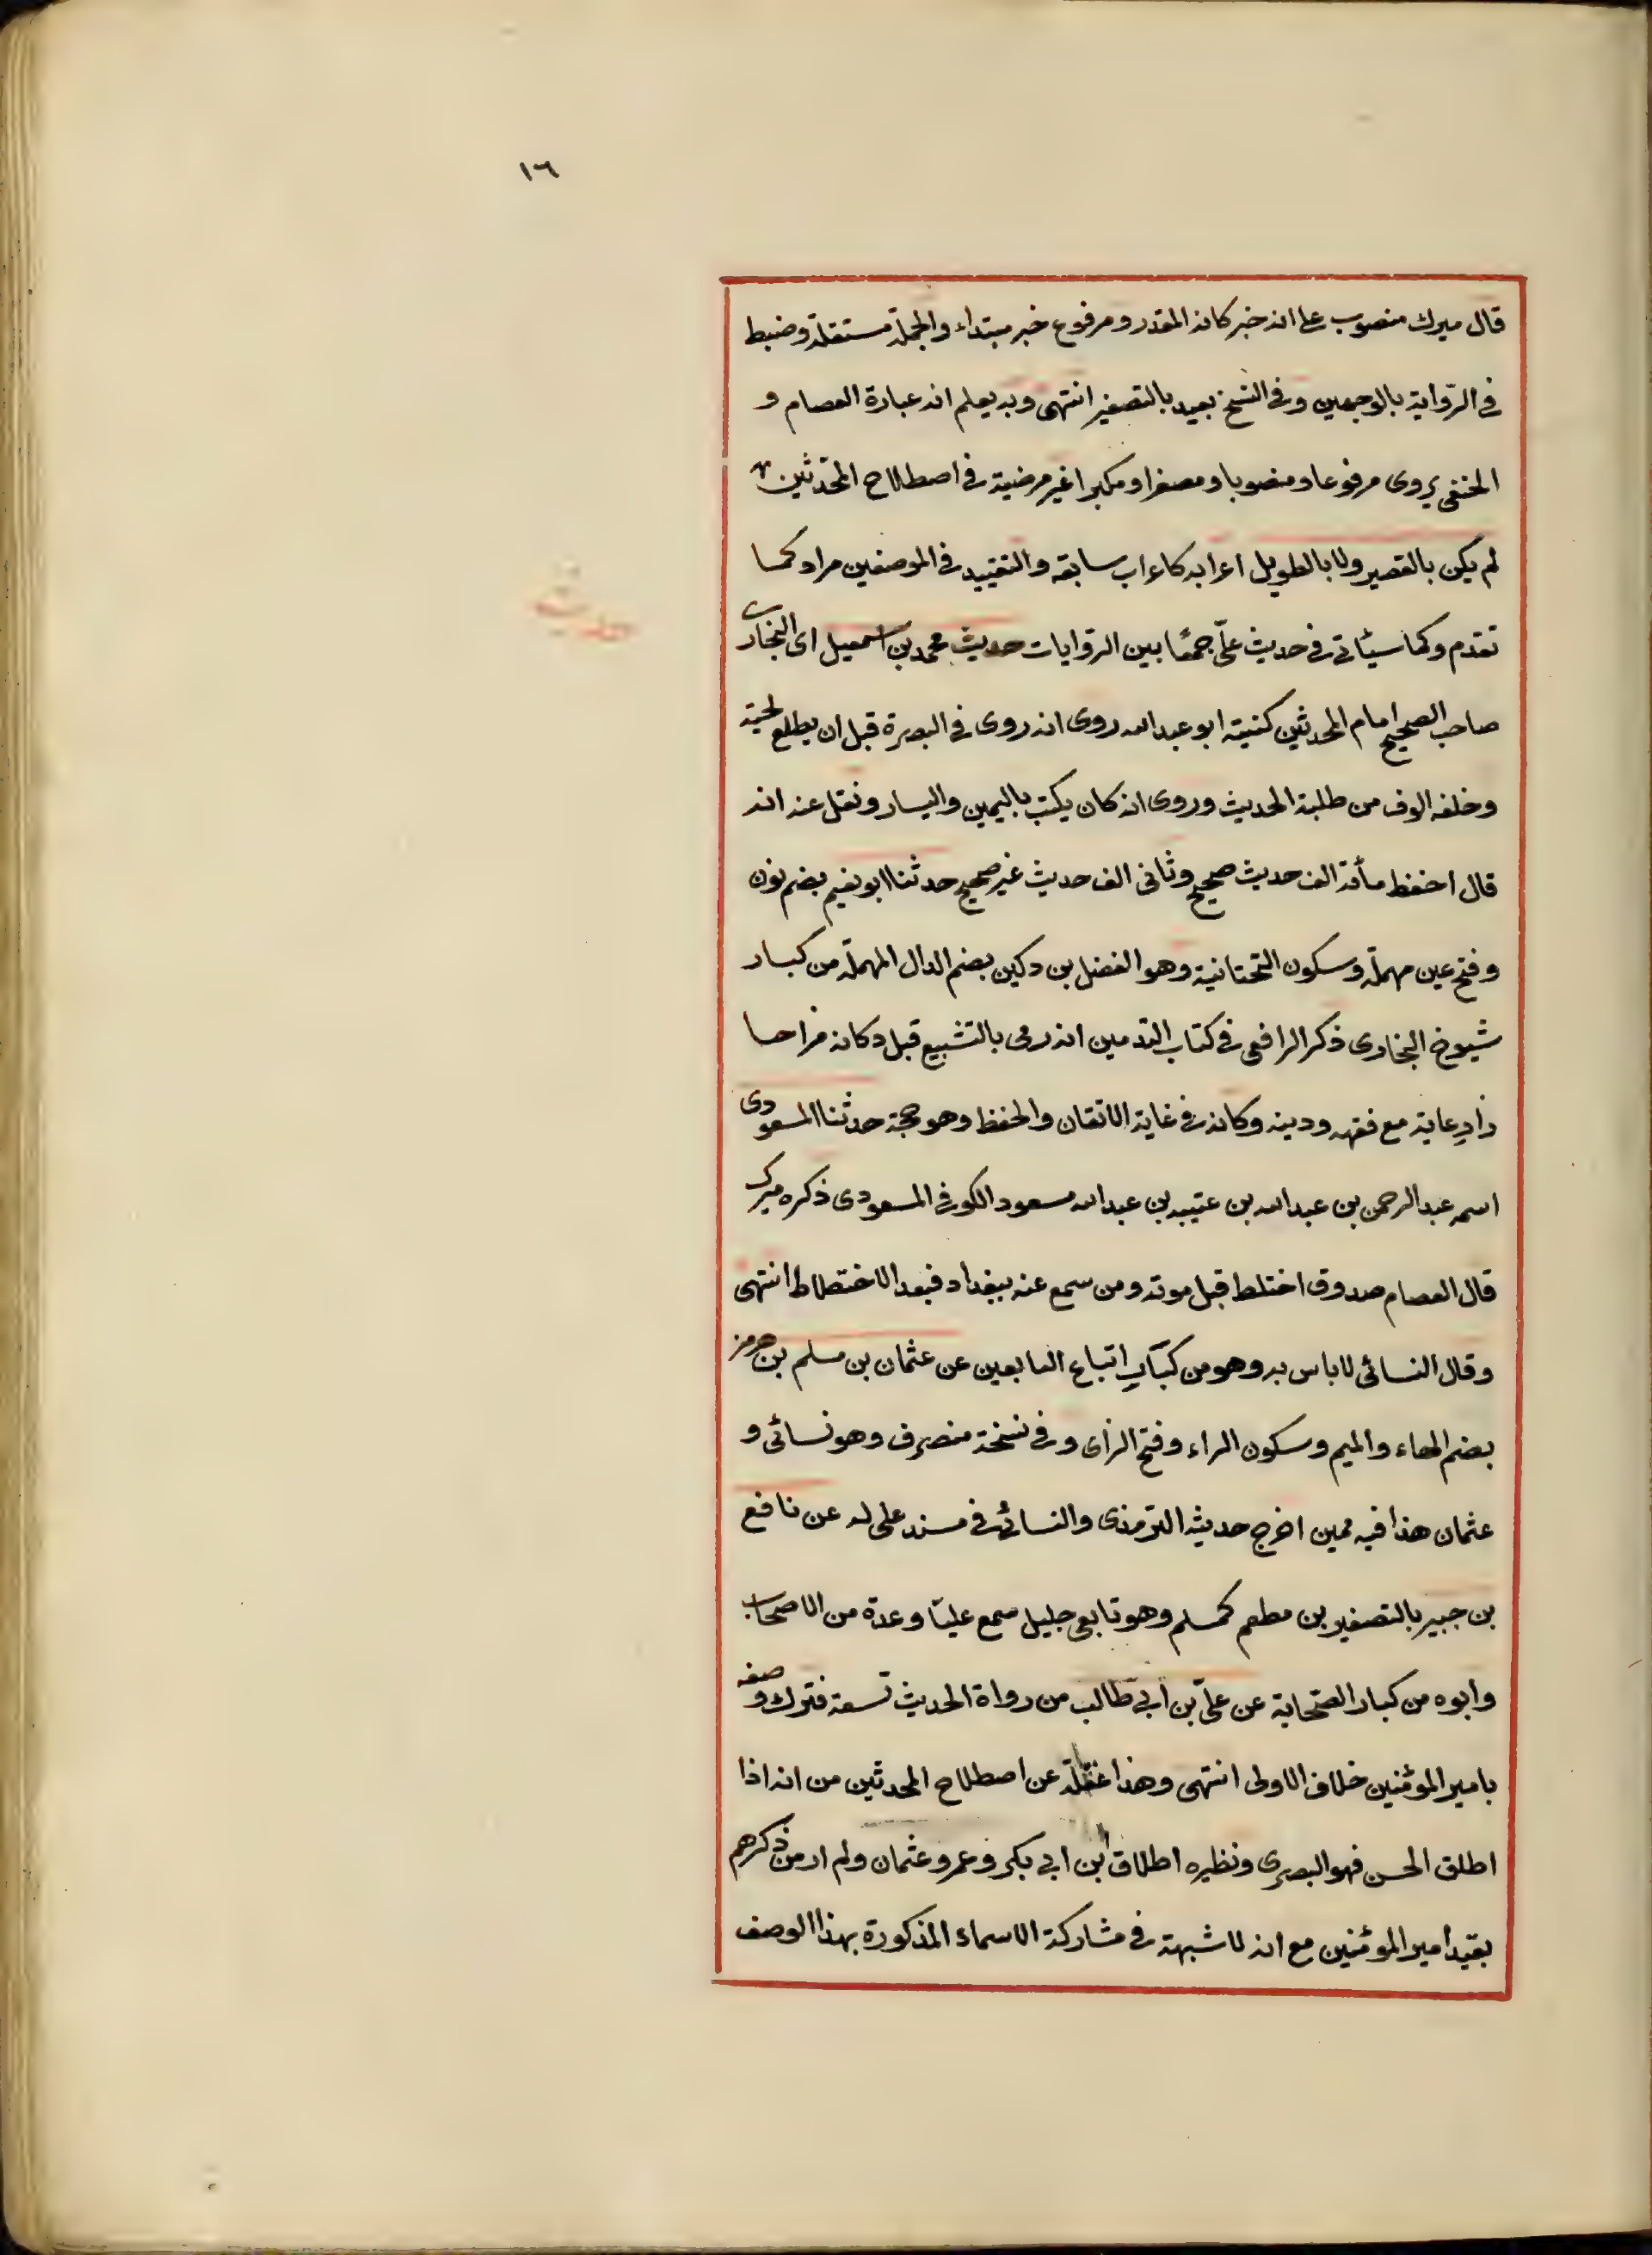 ١٦
قال ميرك منصوب على انه خبر كان المقدر ومرفوع خبر مبتداء والجملة مستقلة وضبط
في الرّواية بالوجهين وفي النسخ بعيد بالتصغير انتهى وبه يعلم ان عبارة العصام و
الحنفى يروى مرفوعا ومنصوبا ومصغرا ومكبرا غير مرضية في اصطلاح المحدّثين
لم يكن بالقصير ولا بالطويل اعرابه كاعراب سابقه والتقييد في الموضعين مراد كما
تقدم وكما سيأتى في حديث علىّ جمعًا بين الرّوايات حديث محمد بن اسمعيل اى البخارى
حديث
صاحب الصحيح امام المحدثين كنيته ابو عبد الله روى انه روى في البصرة قبل ان يطلع لحيته
وخلفه الوف من طلبة الحديث وروى انه كان يكتب باليمين واليسار ونقل عنه انه
قال احفظ مأة الف حديث صحيح وثانى الف حديث غير صحيح حدثنا ابو نعيم بضم نون
وفتح عين مهملة وسكون التحتانية وهو الفضل بن دكين بضم الدال المهملة من كبار
شيوخ البخارى ذكر الرافعى في كتاب التدمين انه رمى بالتشبيع قبل وكان مزاحا
ذا دعابة مع فقهه ودينه وكان في غاية الاتقان والحفظ وهو حجة حدثنا المسعودى
اسمه عبد الرحمن بن عبد الله بن عتيبه بن عبد الله مسعود الكوفى المسعودى ذكره ميرك
قال العصام صدوق اختلط قبل موته ومن سمع عنه ببغداد فبعد الاختطاط انتهى
وقال النسائى لا باس به وهو من كبار اتباع التابعين عن عثمان بن مسلم بن هرمز
بضم الهاء والميم وسكون الراء وفتح الزاى وفي نسخة منصرف وهو نسائى و
عثمان هذا فيه لين اخرج حديثه الترمذى والنسائى في مسند على له عن نافع
بن جبير بالتصغير بن مطعم كمسلم وهو تابعى جليل سمع عليّا وعدة من الاصحاب
وابوه من كبار الصّحابة عن علىّ بن ابى طالب من رواة الحديث تسعة فترك وصفه
بامير المؤمنين خلاف الاولى انتهى وهذا غفلة عن اصطلاح المحدثين من انه اذا
اطلق الحسن فهو البصرى ونظيره اطلاق ابن ابى بكر وعمر وعثمان ولم ار من ذكرهم
بقيد امير المؤمنين مع انه لا شبهة في مشاركة الاسماء المذكورة بهذا الوصف